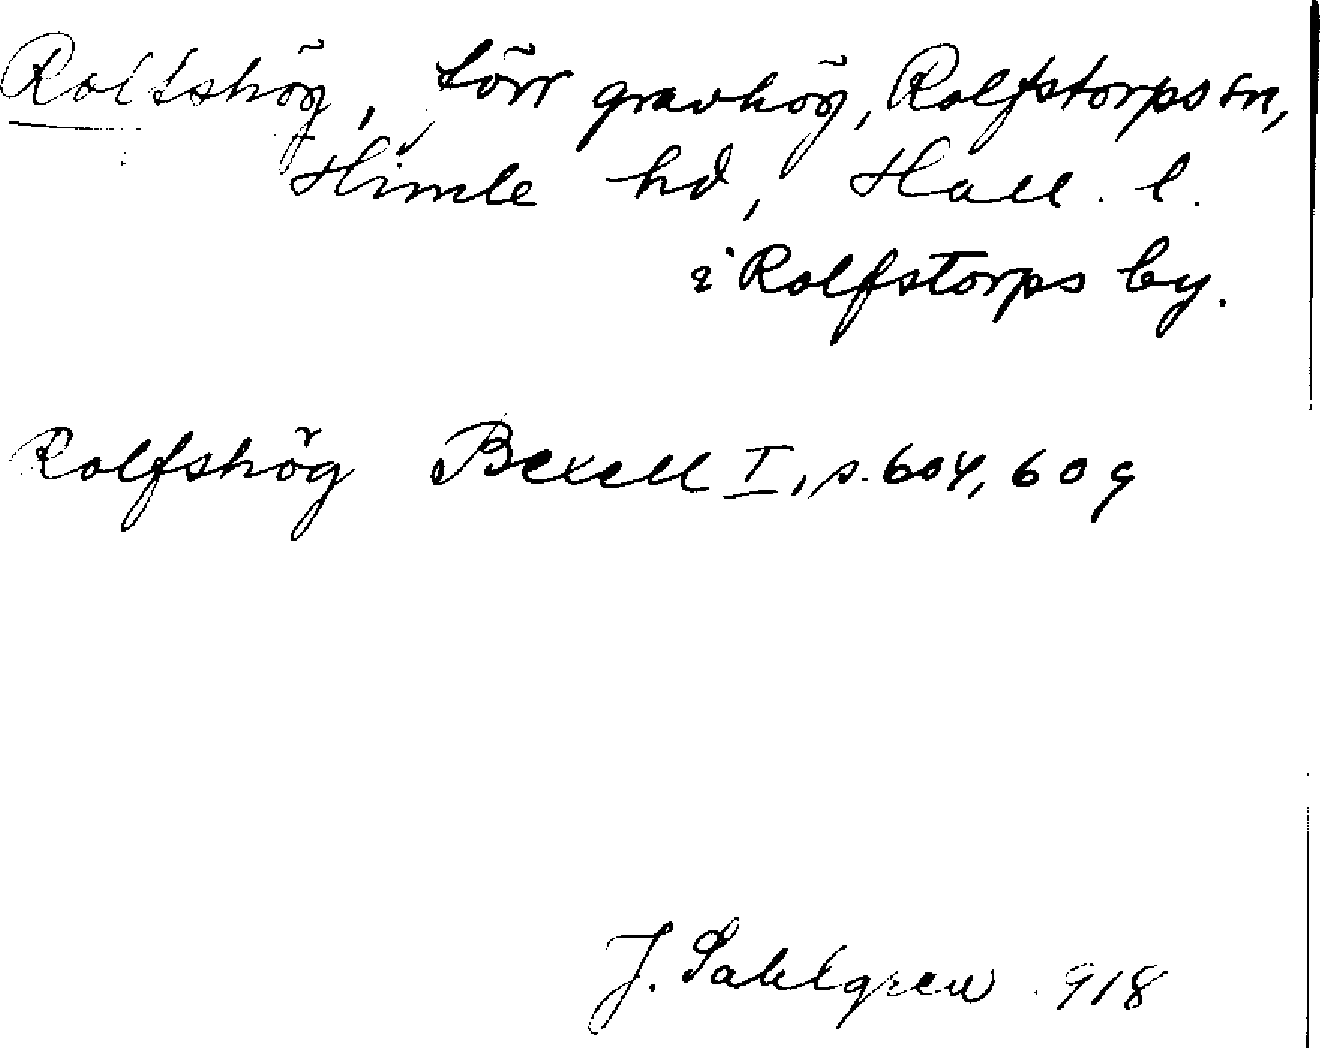 Rolfshög, förr gravhög, Rolfstorps sn,
Himle hd, Hall. l.
i Rolfstorps by.
Rolfshög Bexell I, s. 604, 609
J. Sahlgren 918